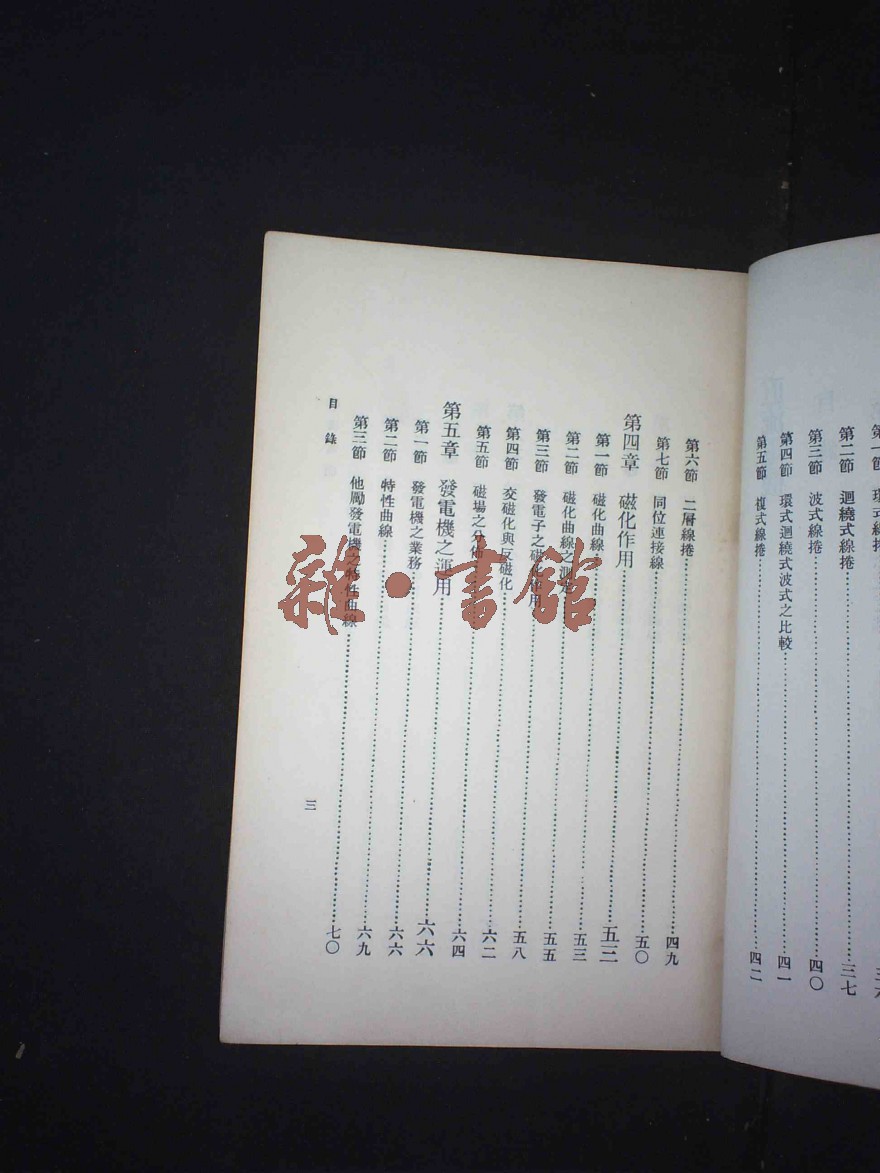 第二節 迴繞式線捲……三七
第三節 波式線捲……四〇
第四節 環式迴繞式波式之比較……四一
第五節 複式線捲……四二
第六節 二層線捲……四九
第七節 同位連接線……五〇
第四章 磁化作用……五三
第一節 磁化曲線……五三
第二節 磁化曲線之測定……五五
第三節 發電子之磁化作用……五八
第四節 交磁化與反磁化……六二
第五節 磁場之分佈……六四
第五章 發電機之運用……六六
第一節 發電機之業務……六六
第二節 特性曲線……六九
第三節 他勵發電機之特性曲線……七〇
目錄
三
雜·書館